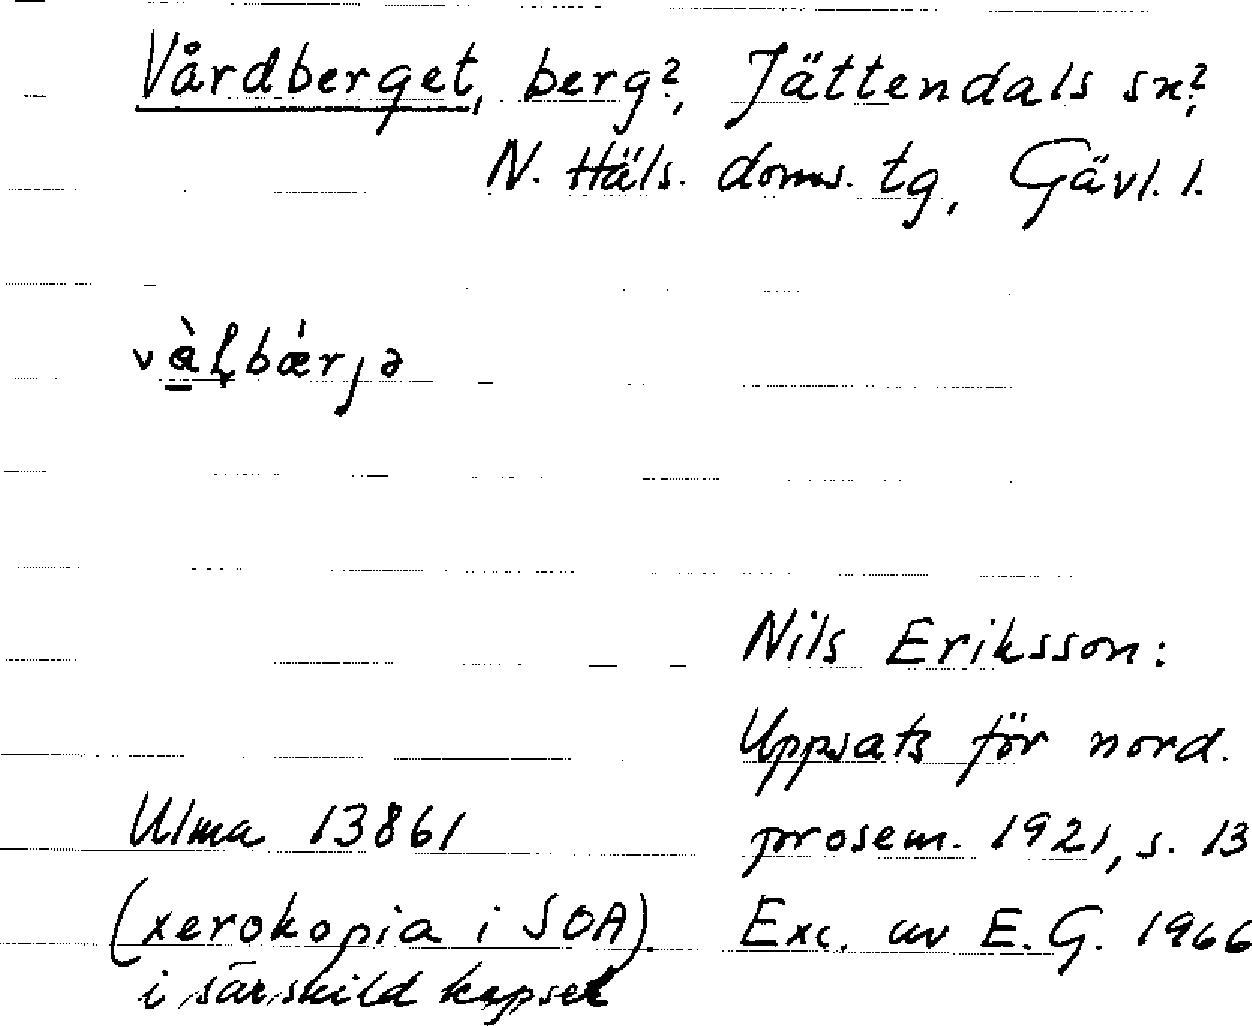 Vårdberget, berg?, Jättendals sn?,
N. Häls. doms. tg, Gävl. l.
vàḷbǽrjə
Nils Eriksson:
Uppsats för nord.
Ulma 13861 prosem. 1921, s. 13
(xerokopia i SOA). Exc. av E.G. 1966
i särskild kapsel